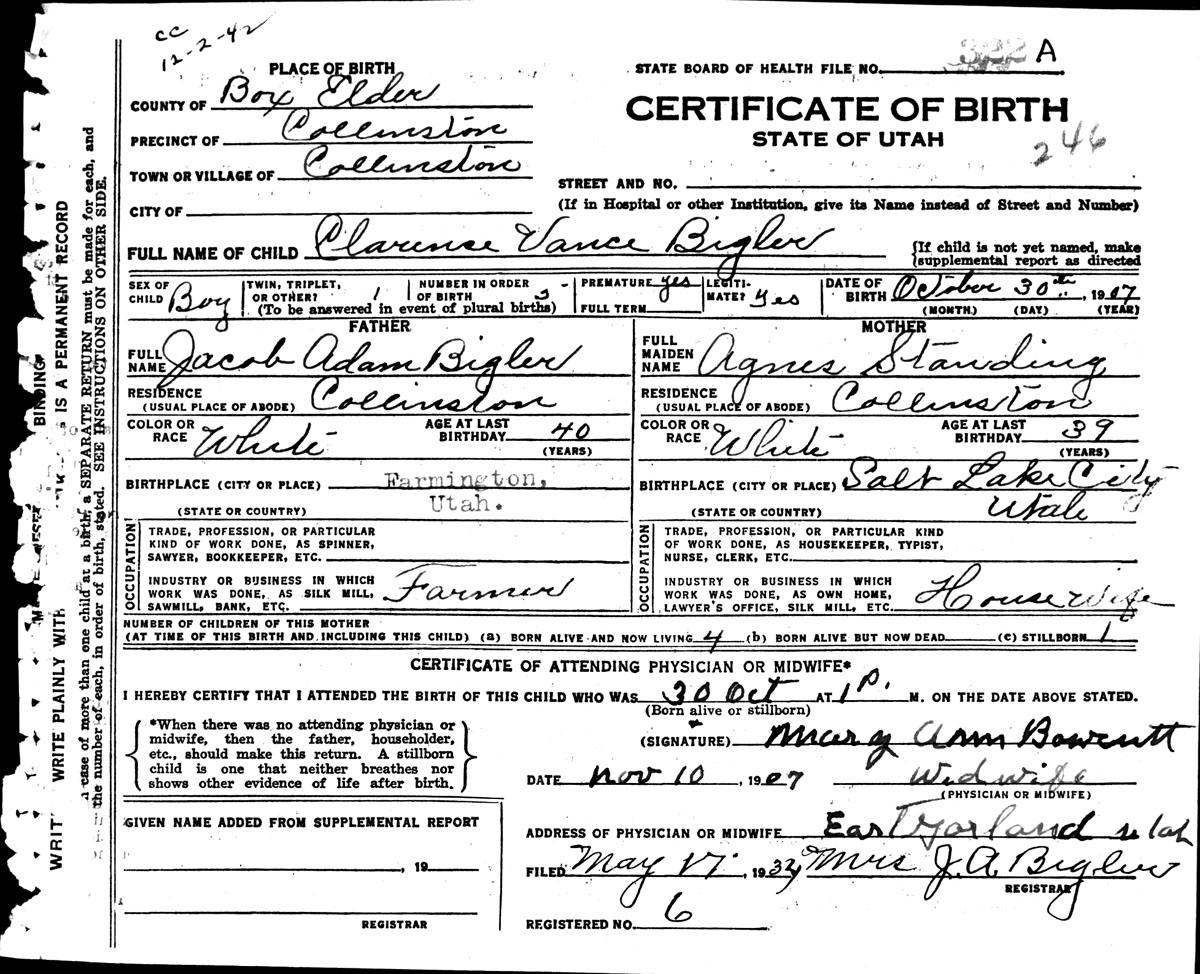 cc
12-2-42
PLACE OF BIRTH
COUNTY OF Box Elder
PRECINCT OF Collinston
TOWN OR VILLAGE OF Collinston
CITY OF
STATE BOARD OF HEALTH FILE NO. 322 A
CERTIFICATE OF BIRTH
STATE OF UTAH
246
STREET AND NO.
(If in Hospital or other Institution, give its Name instead of Street and Number)
FULL NAME OF CHILD Clarence Vance Bigler
{If child is not yet named, make
{supplemental report as directed
SEX OF CHILD Boy
TWIN, TRIPLET, OR OTHER? 1
NUMBER IN ORDER OF BIRTH 5
(To be answered in event of plural births)
PREMATURE yes
FULL TERM
LEGITIMATE? Yes
DATE OF BIRTH October 30th, 1907
(MONTH) (DAY) (YEAR)
FATHER
FULL NAME Jacob Adam Bigler
RESIDENCE
(USUAL PLACE OF ABODE) Collinston
COLOR OR RACE White
AGE AT LAST BIRTHDAY 40
(YEARS)
BIRTHPLACE (CITY OR PLACE) Farmington,
Utah.
(STATE OR COUNTRY)
OCCUPATION
TRADE, PROFESSION, OR PARTICULAR
KIND OF WORK DONE, AS SPINNER,
SAWYER, BOOKKEEPER, ETC.
INDUSTRY OR BUSINESS IN WHICH
WORK WAS DONE, AS SILK MILL,
SAWMILL, BANK, ETC. Farmer
MOTHER
FULL MAIDEN NAME Agnes Standing
RESIDENCE
(USUAL PLACE OF ABODE) Collinston
COLOR OR RACE White
AGE AT LAST BIRTHDAY 39
(YEARS)
BIRTHPLACE (CITY OR PLACE) Salt Lake City
(STATE OR COUNTRY) Utah
OCCUPATION
TRADE, PROFESSION, OR PARTICULAR KIND
OF WORK DONE, AS HOUSEKEEPER, TYPIST,
NURSE, CLERK, ETC.
INDUSTRY OR BUSINESS IN WHICH
WORK WAS DONE, AS OWN HOME,
LAWYER'S OFFICE, SILK MILL, ETC. House Wife
NUMBER OF CHILDREN OF THIS MOTHER
(AT TIME OF THIS BIRTH AND INCLUDING THIS CHILD) (a) BORN ALIVE AND NOW LIVING 4 (b) BORN ALIVE BUT NOW DEAD (c) STILLBORN 1
CERTIFICATE OF ATTENDING PHYSICIAN OR MIDWIFE*
I HEREBY CERTIFY THAT I ATTENDED THE BIRTH OF THIS CHILD WHO WAS 30 Oct AT 1 P. M. ON THE DATE ABOVE STATED.
(Born alive or stillborn)
*When there was no attending physician or
midwife, then the father, householder,
etc., should make this return. A stillborn
child is one that neither breathes nor
shows other evidence of life after birth.
(SIGNATURE) Mary Ann Bowcutt
DATE Nov 10, 1907 Midwife
(PHYSICIAN OR MIDWIFE)
GIVEN NAME ADDED FROM SUPPLEMENTAL REPORT
, 19
REGISTRAR
ADDRESS OF PHYSICIAN OR MIDWIFE East Garland Utah
FILED May 17, 1932, Mrs J.A. Bigler
REGISTRAR
REGISTERED NO. 6
BINDING
IS A PERMANENT RECORD
WRITE PLAINLY WITH
case of more than one child at a birth, a SEPARATE RETURN must be made for each, and
the number of each, in order of birth, stated. SEE INSTRUCTIONS ON OTHER SIDE.